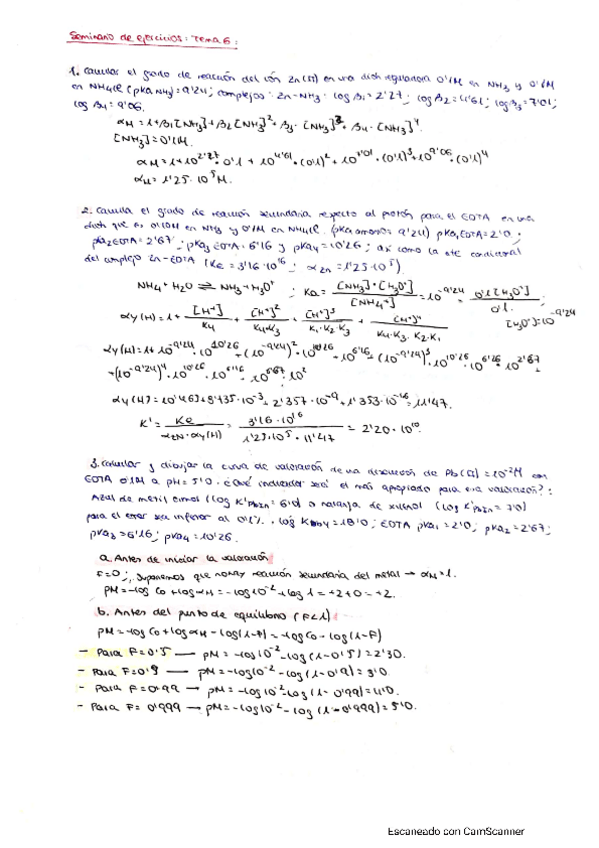 Seminario de ejercicios: Tema 6:
1. Calcular el grado de reacción del ión Zn(II) en una disln reguladora 0'1M en NH3 y 0'1M
en NH4Cl (pKa NH4)=9'24; complejos: Zn-NH3: log β1=2'27; log β2=4'61; log β3=7'01;
log β4=9'06.
αM = 1+β1[NH3]+β2[NH3]²+β3·[NH3]³+β4·[NH3]⁴.
[NH3]=0'1M.
αM = 1+10^2'27·0'1+10^4'61·(0'1)²+10^7'01·(0'1)³+10^9'06·(0'1)⁴
αM = 1'25·10⁵ M.
2. Calcula el grado de reacción secundaria respecto al protón para el EDTA en una
disln que es 0'10M en NH3 y 0'1M en NH4Cl. (pKa amonio: 9'24) pKa1 EDTA=2'0;
pKa2 EDTA=2'67; pKa3 EDTA=6'16 y pKa4=10'26; así como la cte condicional
del complejo Zn-EDTA (Ke=3'16·10^16; αZn=1'25·10⁵)
NH4+H2O ⇌ NH3+H3O⁺; Ka = [NH3]·[H3O⁺] / [NH4⁺] = 10^-9'24 = 0'1[H3O⁺] / 0'1. ; [H3O⁺]=10^-9'24
αY(H)=1+ [H⁺]/K4 + [H⁺]²/K4·K3 + [H⁺]³/K4·K3·K2 + [H⁺]⁴/K4·K3·K2·K1
αY(H)=1+10^-9'24·10^10'26+(10^-9'24)²·10^10'26·10^6'16+(10^-9'24)³·10^10'26·10^6'16·10^2'67+
+(10^-9'24)⁴·10^10'26·10^6'16·10^2'67·10²
αY(H)=10'463+8'735·10⁻³+2'357·10⁻⁹+1'353·10⁻¹⁶=11'47.
K' = Ke / αZn·αY(H) = 3'16·10^16 / 1'25·10⁵·11'47 = 2'20·10^10.
3. Calcular y dibujar la curva de valoración de una disolución de Pb(II)=10⁻²M con
EDTA 0'1M a pH=5'0. ¿Qué indicador será el más apropiado para esa valoración?:
Azul de metil timol (log K'PbIn=6'0) o naranja de xilenol (log K'PbIn=7'0)
para el error sea inferior al 0'1%. log KPbY=18'0; EDTA pKa1=2'0; pKa2=2'67;
pKa3=6'16; pKa4=10'26.
a. Antes de iniciar la valoración
F=0; Suponemos que no hay reacción secundaria del metal → αM=1.
PM=-log Co+log αM=-log 10⁻²+log 1=+2+0=+2.
b. Antes del punto de equilibrio (F<1)
PM=-log Co+log αM-log(1-F)=-log Co-log(1-F)
- Para F=0'5 → PM=-log10⁻²-log(1-0'5)=2'30.
- Para F=0'9 → PM=-log10⁻²-log(1-0'9)=3'0.
- Para F=0'99 → PM=-log10⁻²-log(1-0'99)=4'0.
- Para F=0'999 → PM=-log10⁻²-log(1-0'999)=5'0.
Escaneado con CamScanner